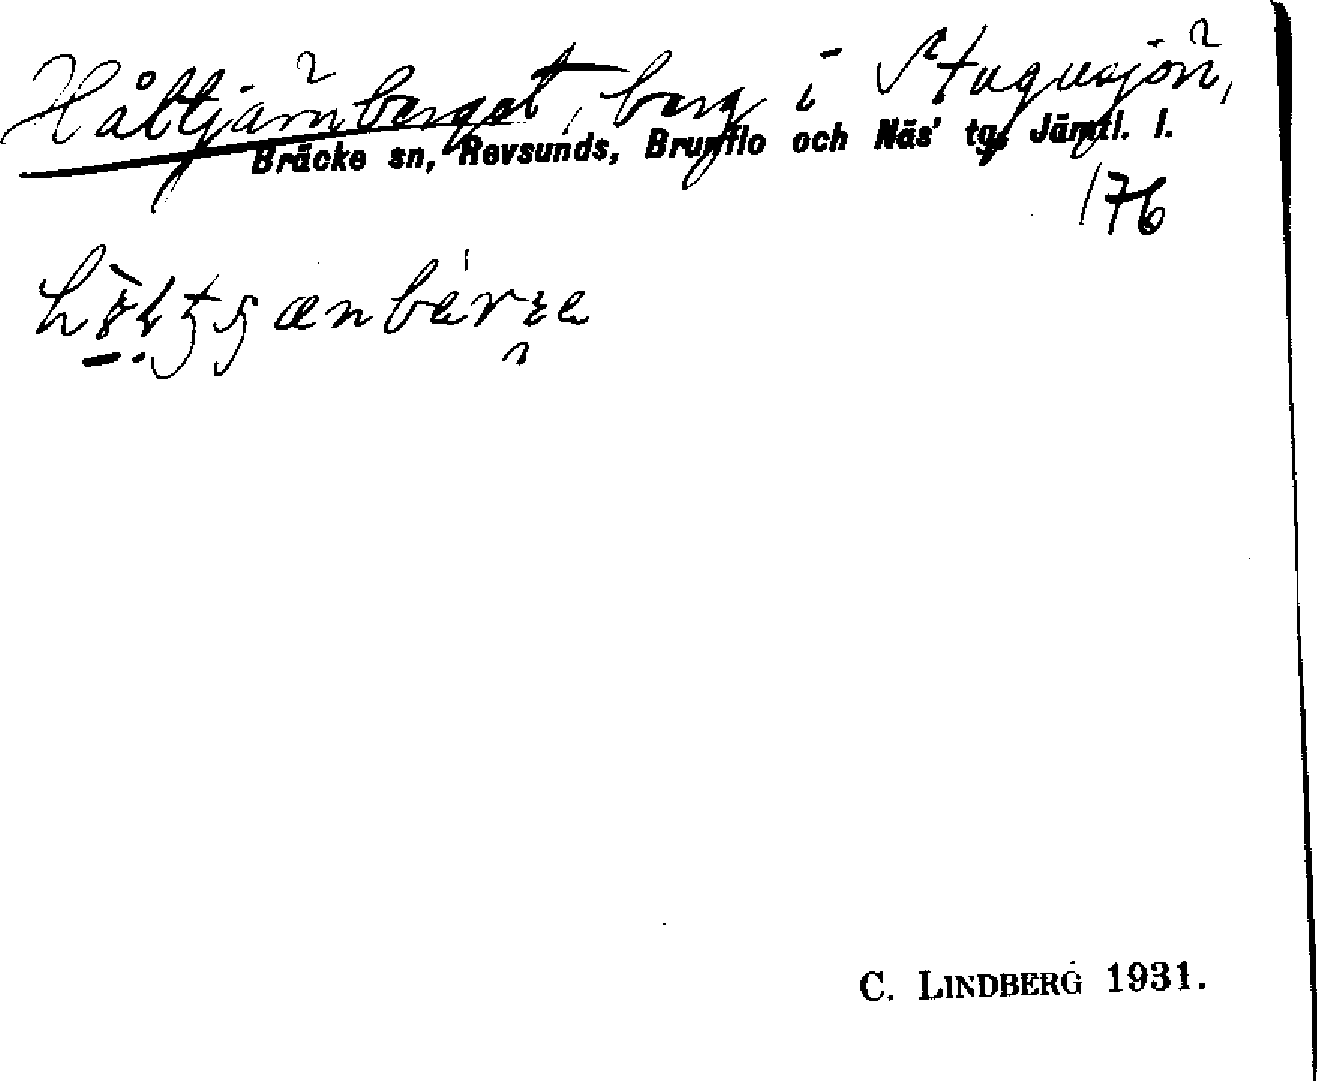 Håltjärnberget, berg i Stugusjön,
Bräcke sn, Revsunds, Brunflo och Näs' tg, Jämtl. l.
176
C. LINDBERG 1931.